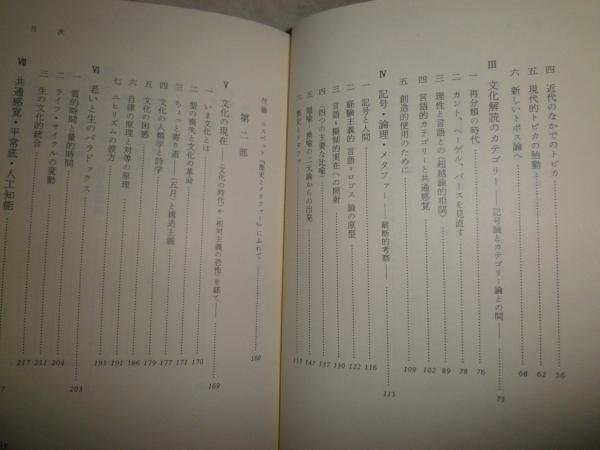 四 近代のなかでのトピカ 56
五 現代的トピカの胎動 62
六 新しいトポス論へ 68
III 文化解読のカテゴリー——記号論とカテゴリー論との間—— 75
一 再分類の時代 76
二 カント、ヘーゲル、パースを見直す 78
三 理性と言語との〈超越論的相関〉 89
四 言語的カテゴリーと共通感覚 102
五 創造的使用のために 109
IV 記号・論理・メタファー——原理的考察 115
一 記号と人間 116
二 経験主義的言語=ロゴス論の原型 122
三 言語=模制的実在への照射 130
四 〈四つの主要な比喩〉 137
五 隠喩・換喩の二元論からの出発 147
六 歴史とメタファー 153
付論 ニスベット『歴史とメタファー』にふれて 160
第二部
V 文化の現在——〈文化の時代〉や〈相対主義の恐怖〉を経て—— 169
一 いま文化とは 170
二 型の喪失と文化の革命 171
三 ちょっと寄り道——〈五月〉と構造主義 177
四 文化の人類学と詩学 179
五 文化の困惑 179
六 自律の原理と対等の原理 186
七 ニヒリズムの彼方 191
VI 老いと生のパラドックス 203
一 質的時間と量的時間
二 ライフ・サイクルの変動 204
三 生の文化的統合 211
VII 共通感覚・平常底・人工知能
目次